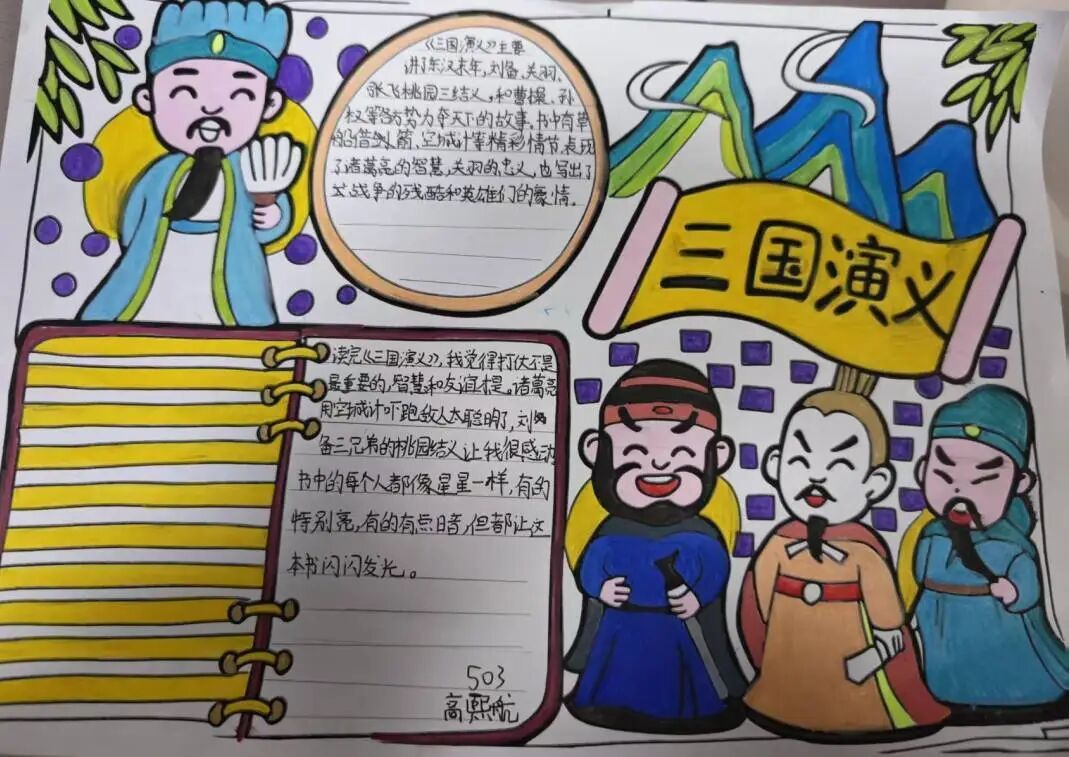 《三国演义》主要
讲了东汉末年,刘备、关羽、
张飞桃园三结义,和曹操、孙
权等各方势力夺天下的故事。书中有草
船借箭、空城计等精彩情节,表现
了诸葛亮的智慧,关羽的忠义,也写出了
战争的残酷和英雄们的豪情。
三国演义
读完《三国演义》,我觉得打仗不是
最重要的,智慧和友谊才是。诸葛亮
用空城计吓跑敌人太聪明了,刘
备三兄弟的桃园结义让我很感动
书中的每个人都像星星一样,有的
特别亮,有的有点日音,但都让这
本书闪闪发光。
503
高熙航